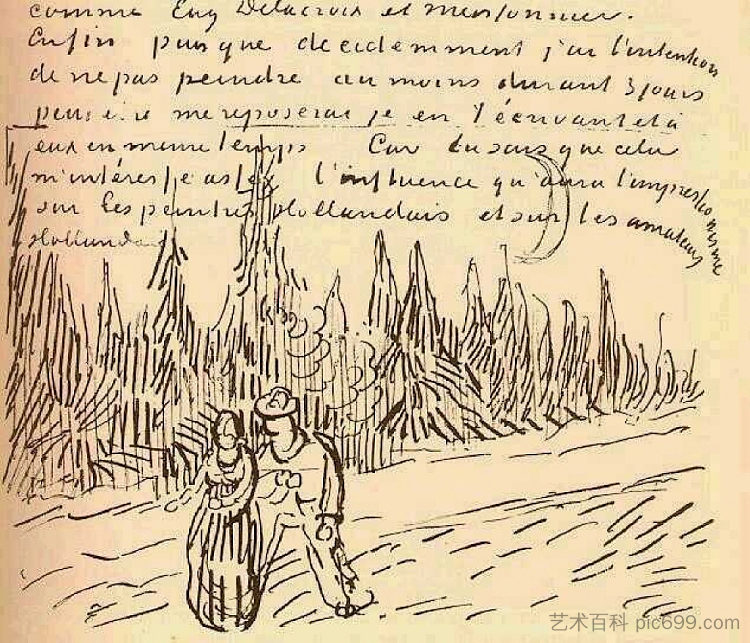 comme Eug Delacroix et Meissonier.
Enfin puisque decidemment j'ai l'intention
de ne pas peindre au moins durant 3 jours
peut être me reposerai je en t'écrivant et à
eux en meme temps Car tu sais que cela
m'intéresse assez l'influence qu'aura l'impressionisme
sur les peintres Hollandais et sur les amateurs
Hollandais
艺术百科 pic699.com